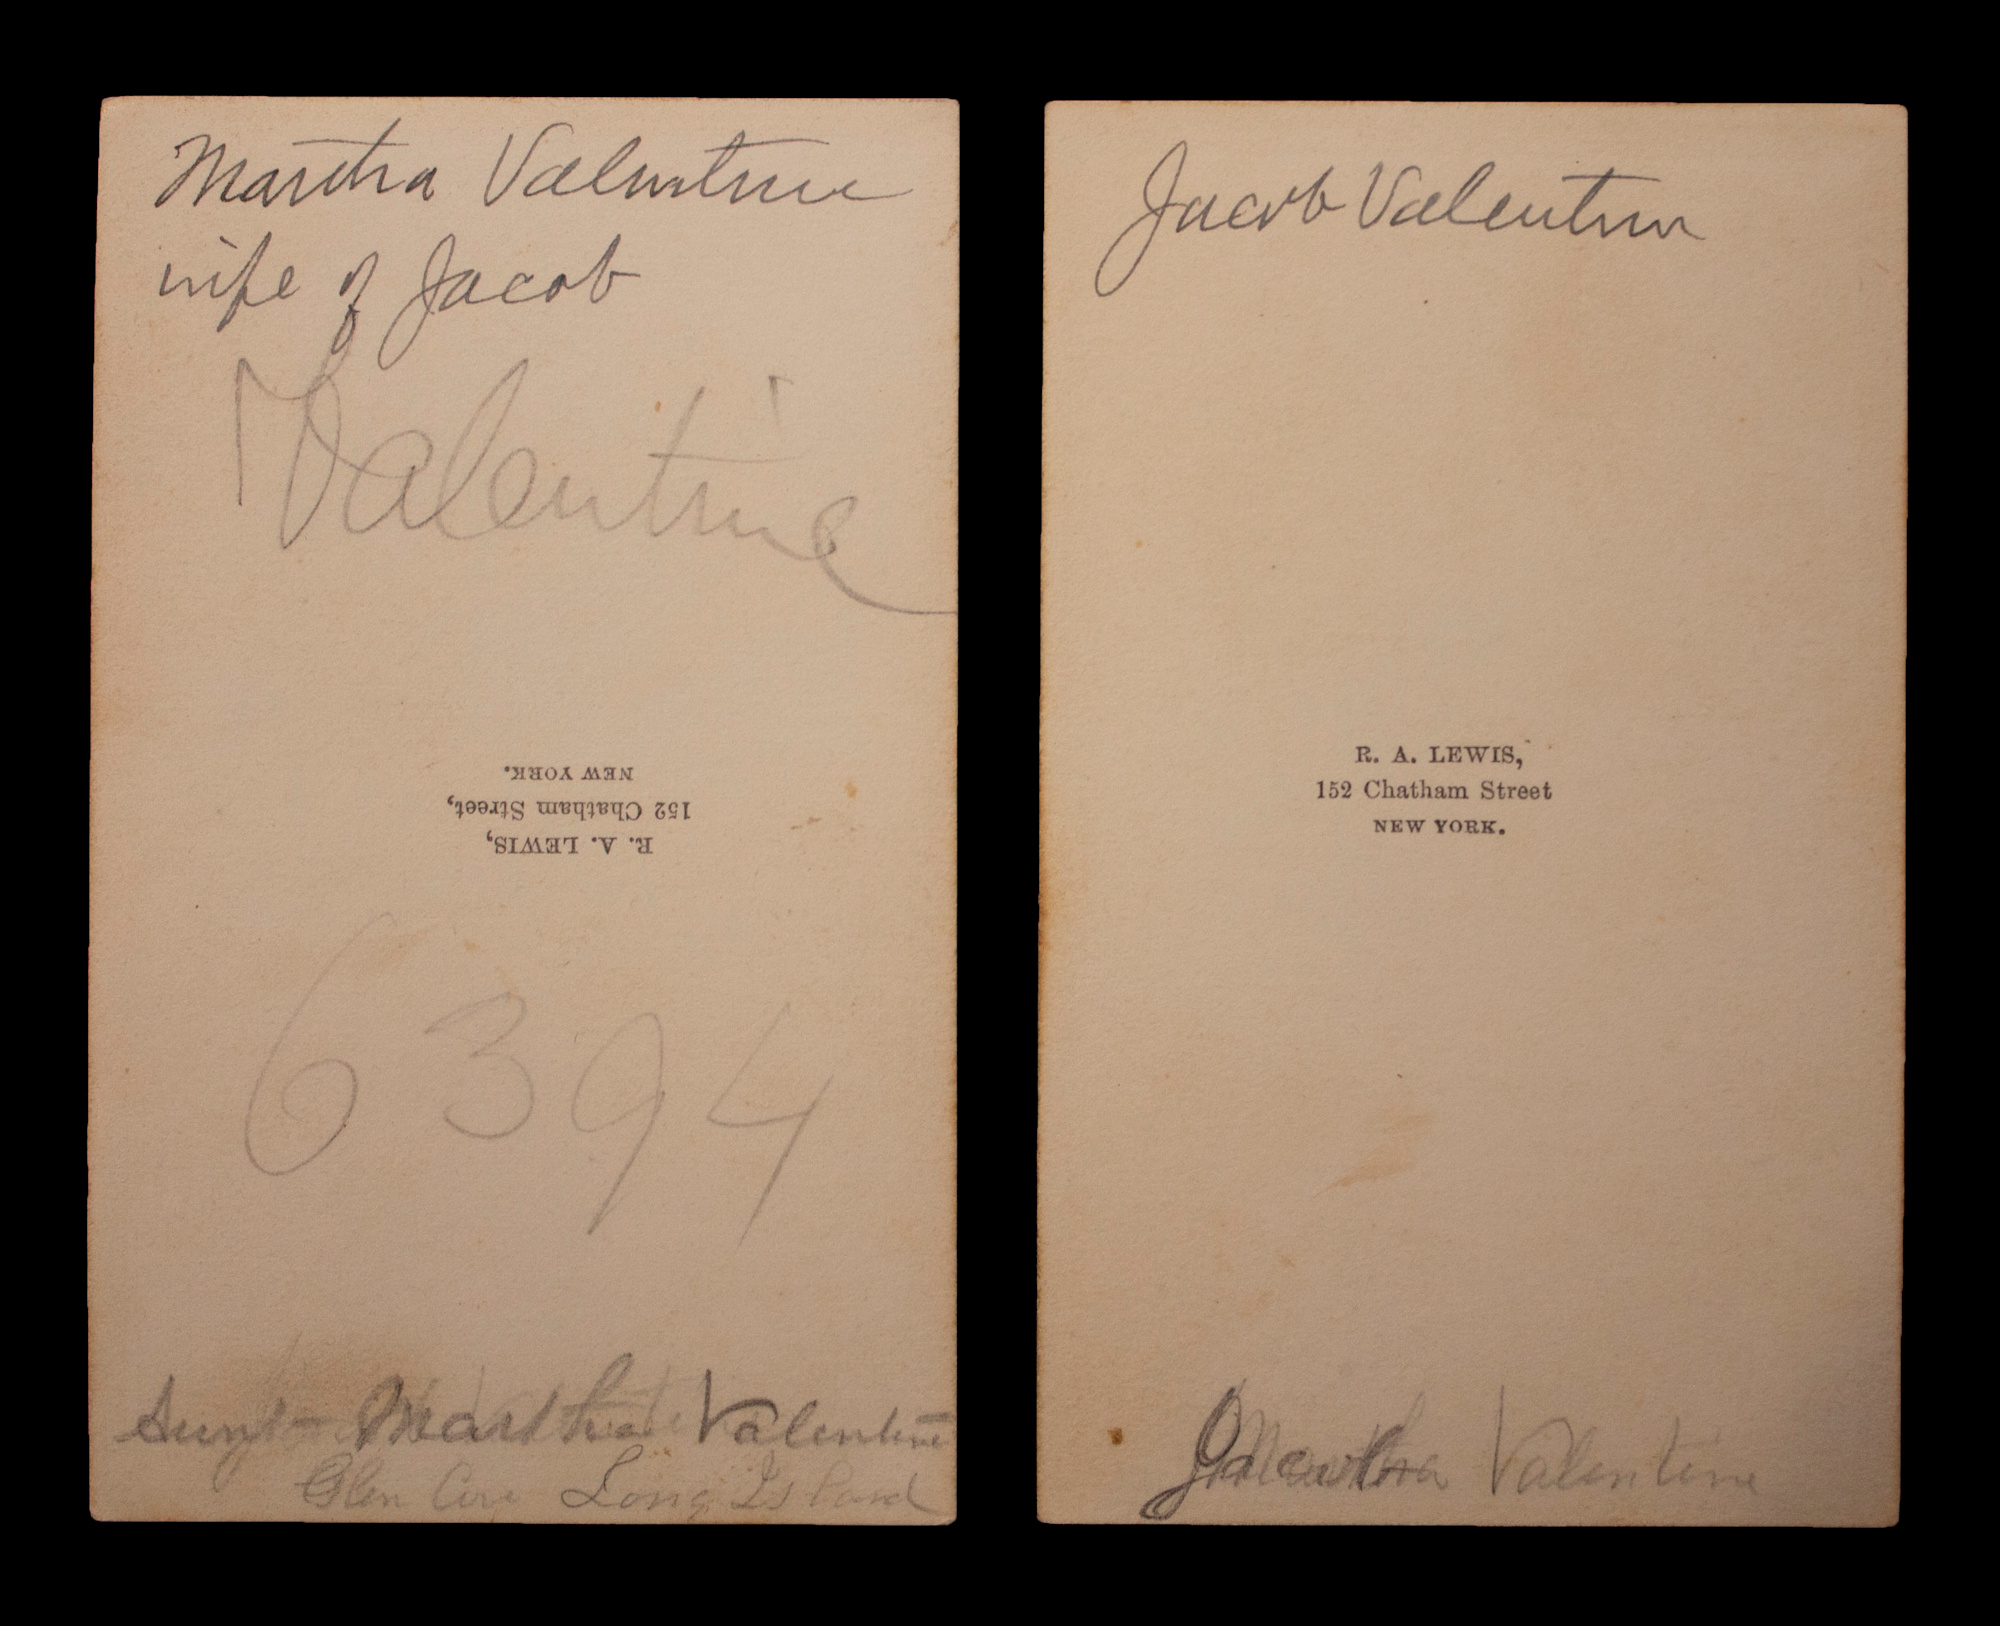 Martha Valentine
wife of Jacob
Valentine
R. A. LEWIS,
152 Chatham Street,
NEW YORK.
6394
Aunt Martha Valentine
Glen Cove Long Island
Jacob Valentine
R. A. LEWIS,
152 Chatham Street
NEW YORK.
Jacob Valentine